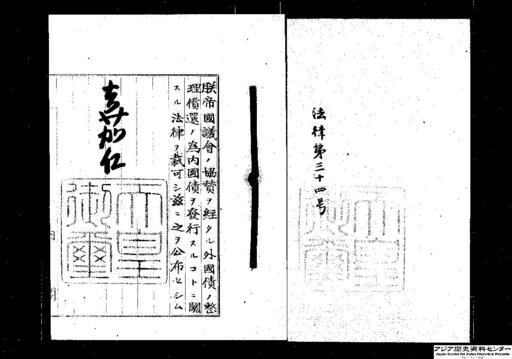 法律第三十四号
朕帝國議會ノ協賛ヲ經タル外國債ノ整
理償還ノ為内國債ヲ發行スルコトニ關
スル法律ヲ裁可シ茲ニ之ヲ公布セシム
嘉仁
天皇
御璽
アジア歴史資料センター
Japan Center for Asian Historical Records